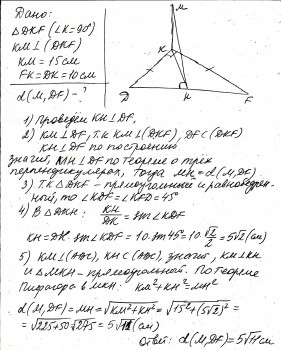 Дано:
△DKF (∠K=90°)
KM⊥(DKF)
KM = 15 см
FK = DK = 10 см
d(M, DF) - ?
M
K
D
H
F
1) Проведём KH⊥DF,
2) KM⊥DF, т.к KM⊥(DKF), DF⊂(DKF)
KH⊥DF по построению
значит, MH⊥DF по теореме о трёх
перпендикулярах, тогда MH = d(M, DF).
3) Т.К △DKF - прямоугольный и равнобедрен-
ный, то ∠KDF = ∠KFD = 45°
4) В △DKH: KH/DK = sin∠KDF
KH = DK · sin∠KDF = 10 · sin45 = 10 · √2/2 = 5√2 (см)
5) KM⊥ KH⊂ значит, KM⊥KH
и △MKH - прямоугольный. По теореме
Пифагора в MKH: KM²+KH² = MH²
d(M, DF) = MH = √KM²+KH² = √15²+(5√2)² =
= √225+50 √275 = 5√11 (см)
Ответ: d(M, DF) = 5√11 см